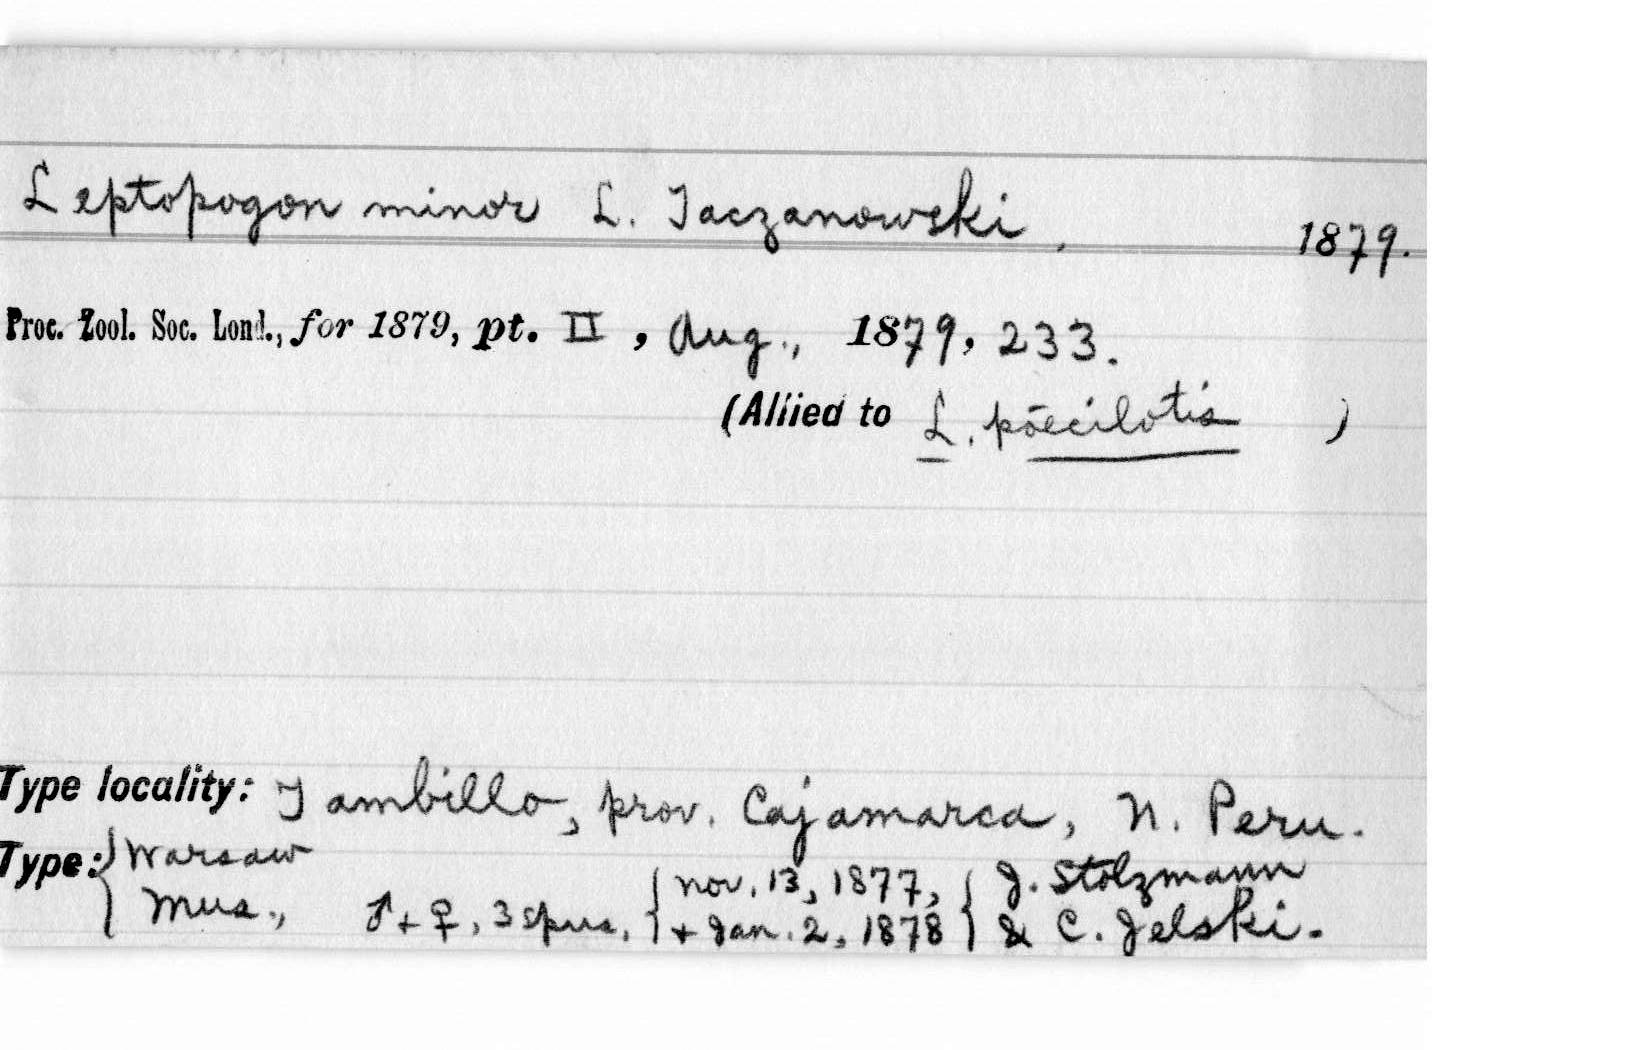 Leptopogon minor L. Taczanowski. 1879.
Proc. Zool. Soc. Lond., for 1879, pt. II, Aug., 1879, 233.
(Allied to L. pœcilotis )
Type locality: Tambillo, prov. Cajamarca, N. Peru.
Type: { Warsaw
Mus., ♂ + ♀, 3 spns. { Nov. 13, 1877, { J. Stolzmann
+ Jan. 2, 1878 } & C. Jelski.